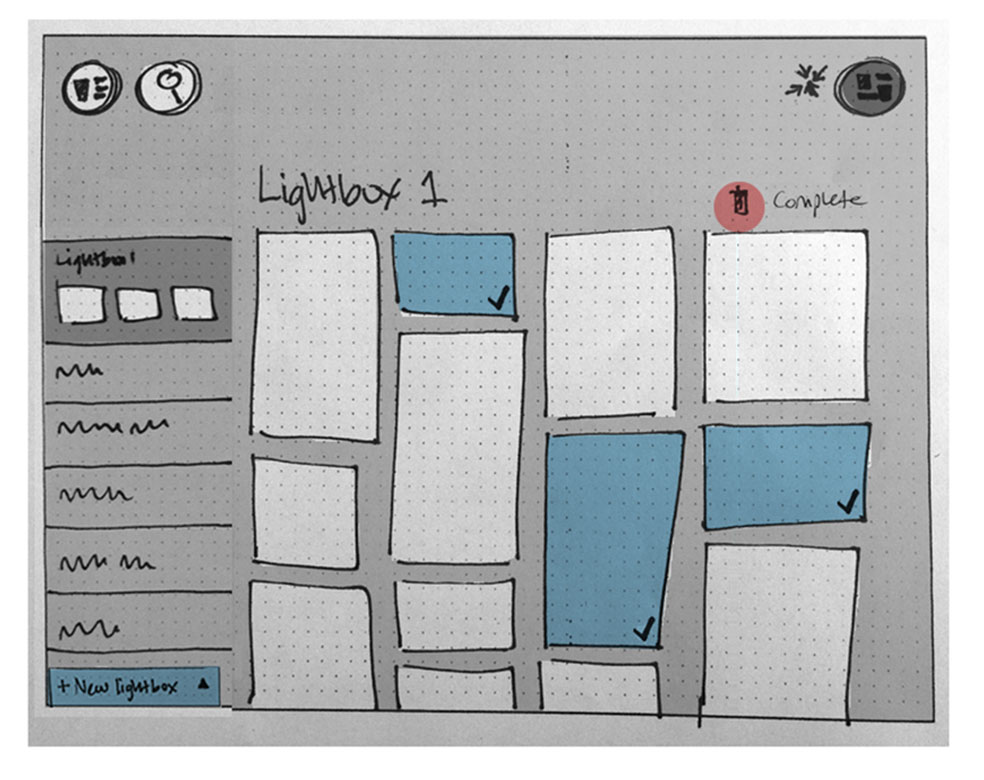 Lightbox 1
Complete
Lightbox 1
+ New lightbox